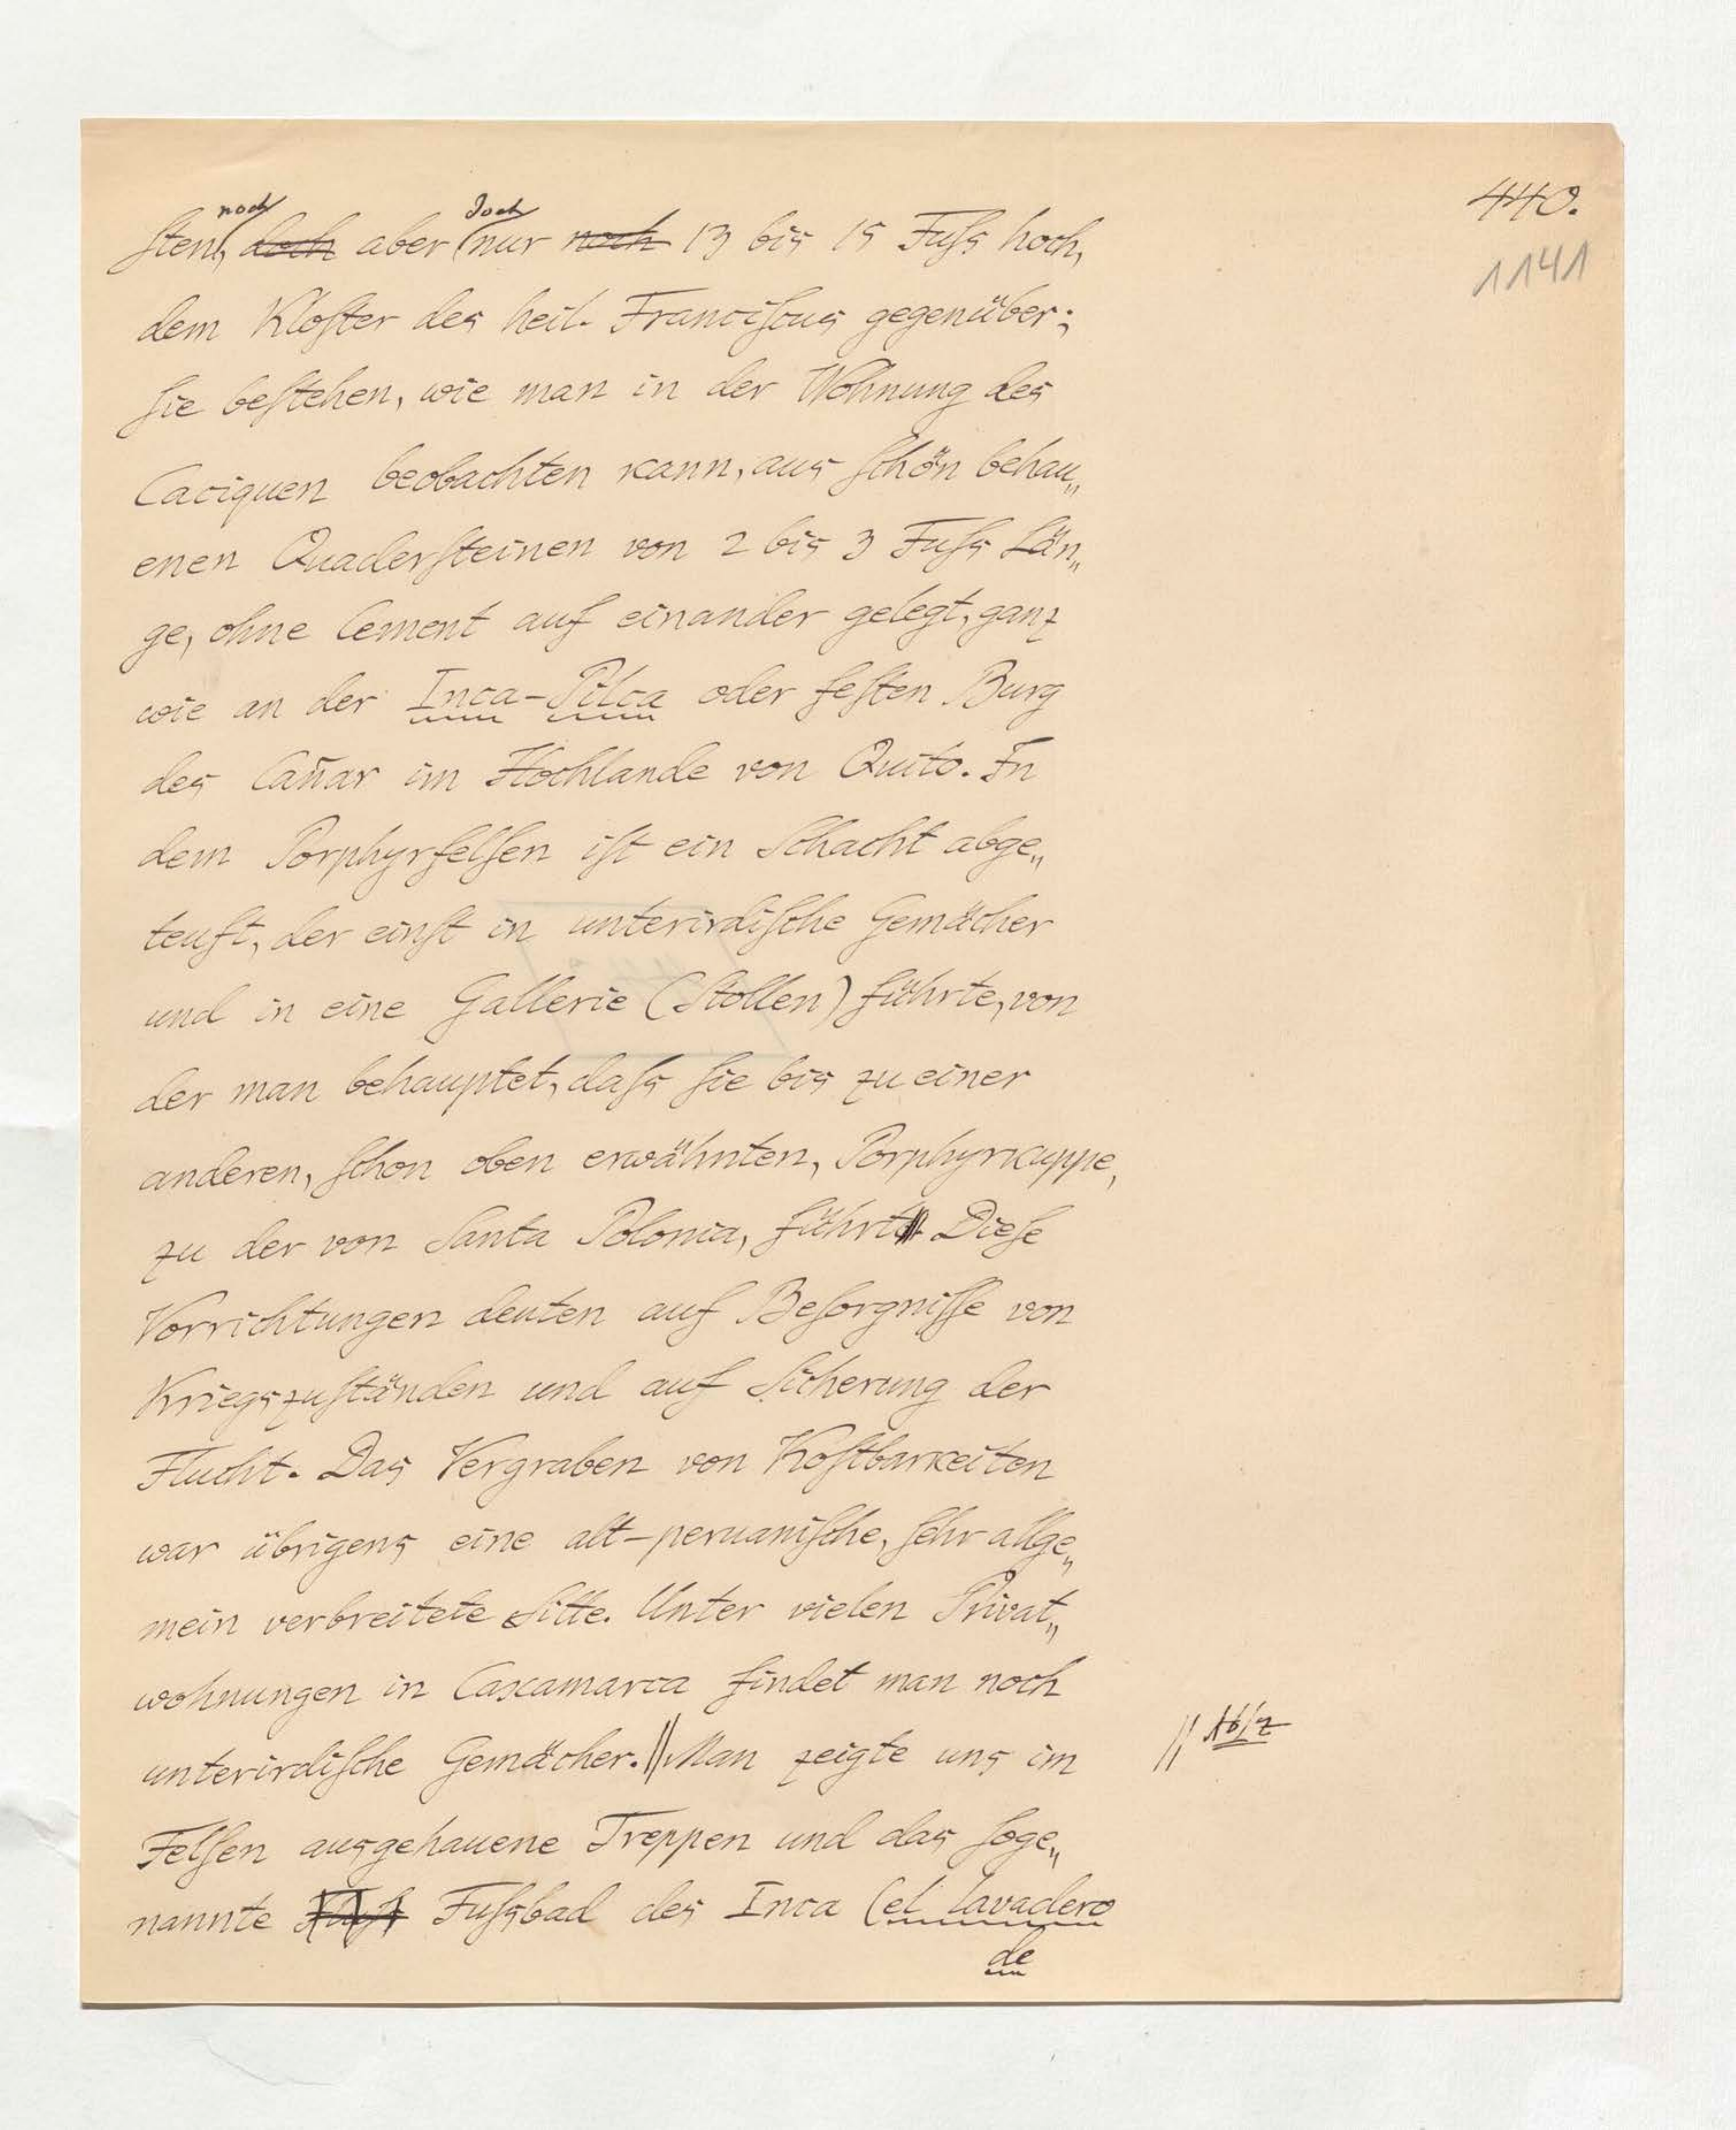 440.
1141
noch doch
ſten, doch aber nur noch 13 bis 15 Fuſs hoch,
dem Kloſter des heil. Franciſcus gegenüber;
ſie beſtehen, wie man in der Wohnung des
Caciquen beobachten kann, aus ſchön behau„
enen Quaderſteinen von 2 bis 3 Fuſs Län„
ge, ohne Cement auf einander gelegt, ganz
wie an der Inca-Pilca oder feſten Burg
des Cañar im Hochlande von Quito. In
dem Porphyrfelſen iſt ein Schacht abge„
teuft, der einſt in unterirdiſche Gemächer
und in eine Gallerie (Stollen) führte, von
der man behauptet, daſs ſie bis zu einer
anderen, ſchon oben erwähnten, Porphyrkuppe,
zu der von Santa Polonia, führt. Dieſe
Vorrichtungen deuten auf Beſorgniſſe von
Kriegszuſtänden und auf Sicherung der
Flucht. Das Vergraben von Koſtbarkeiten
war übrigens eine alt-peruaniſche, ſehr allge„
mein verbreitete Sitte. Unter vielen Privat„
wohnungen in Caxamarca findet man noch
unterirdiſche Gemächer. || Man zeigte uns im
Felſen ausgehauene Treppen und das ſoge„
nannte Fuſsbad des Inca (el lavadero
de